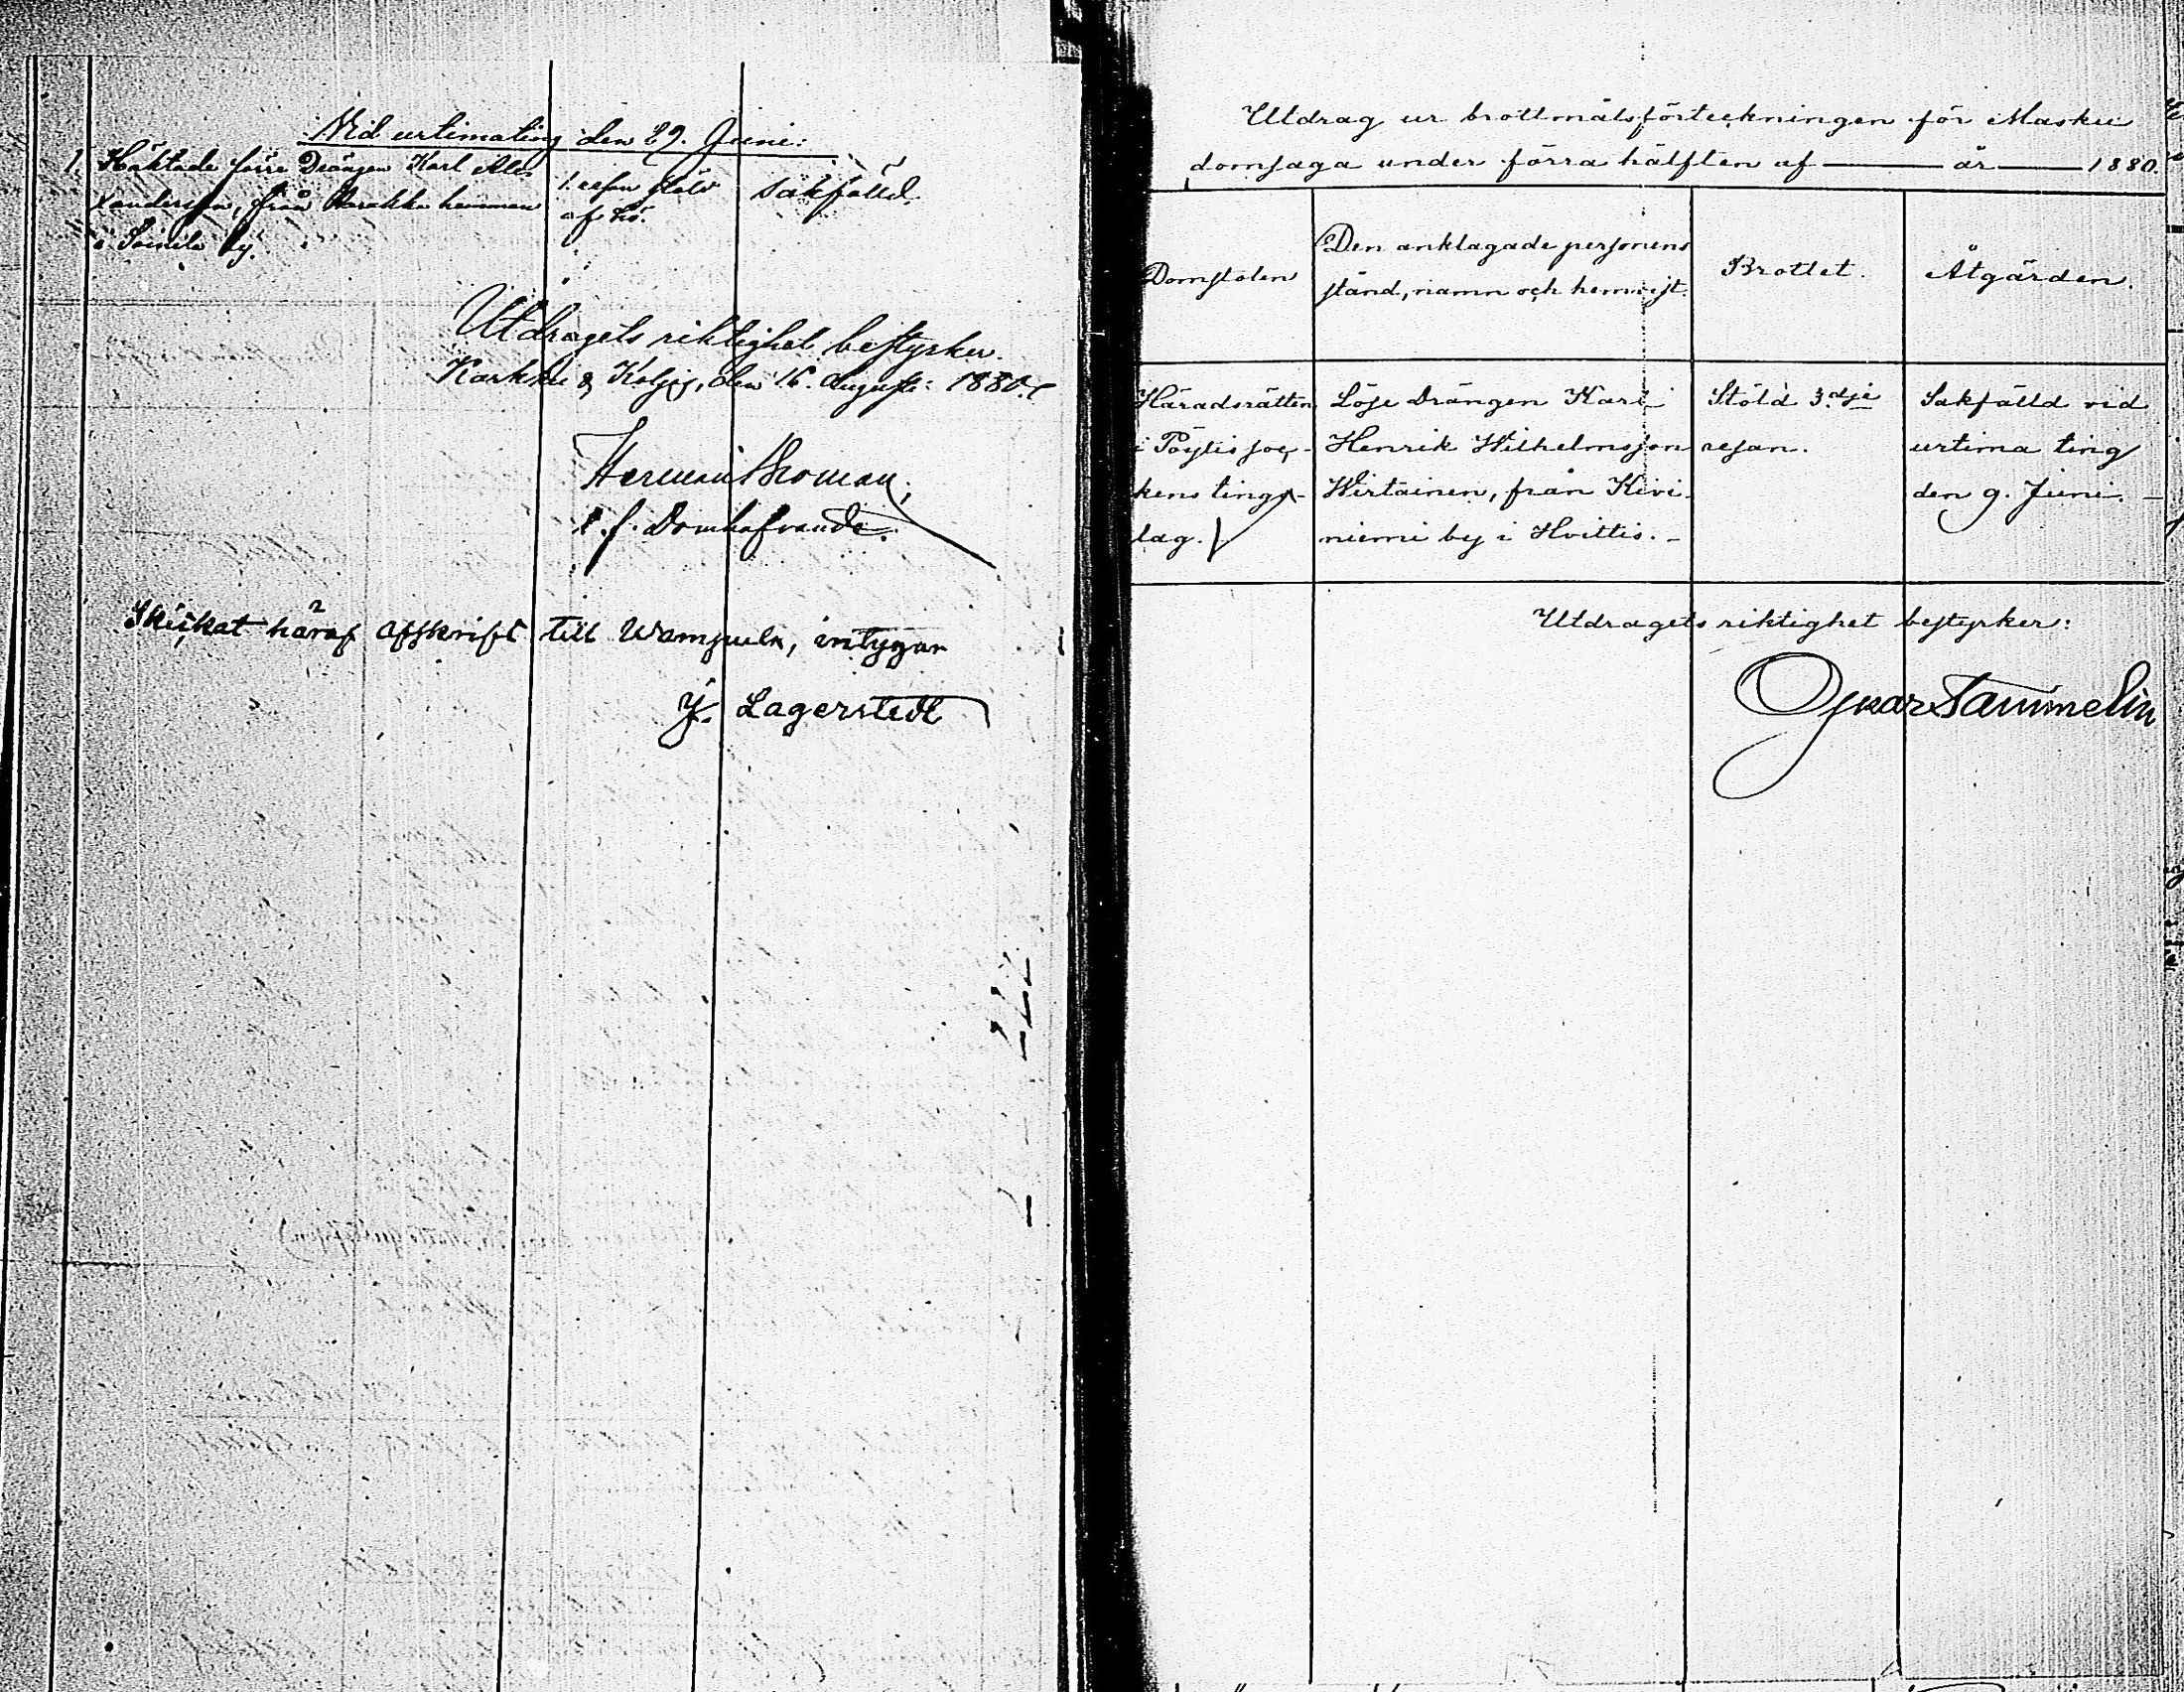 Vid urtimating den 29. Juni:
1. Häktade förre Drängen Karl Ale-
xandersson, från Harakka hemman
i Soinila by.
1. resan stöld
af hö.
Sakfälld.
Utdragets riktighet bestyrker.
Karkku & Koljis, den 16. Augusti 1880.
Herman Roman,
t. f. Domhafvande.
Skickat häraf afskrift till Wampula, intygar
J. Lagerstedt
Utdrag ur brottmålsförteckningen för Masku
domsaga under förra hälften af — år — 1880.
Domstolen
Den anklagade personens
stånd, namn och hemvist.
Brottet.
Åtgärden.
Häradsrätten
i Pöytis soc-
kens tings-
lag.
Löse Drängen Karl
Henrik Wilhelmsson
Wirtainen, från Kivi-
niemi by i Hvittis.
Stöld 3.dje
resan.
Sakfälld vid
urtima ting
den 9. Juni.
Utdragets riktighet bestyrker:
Oskar Tammelin